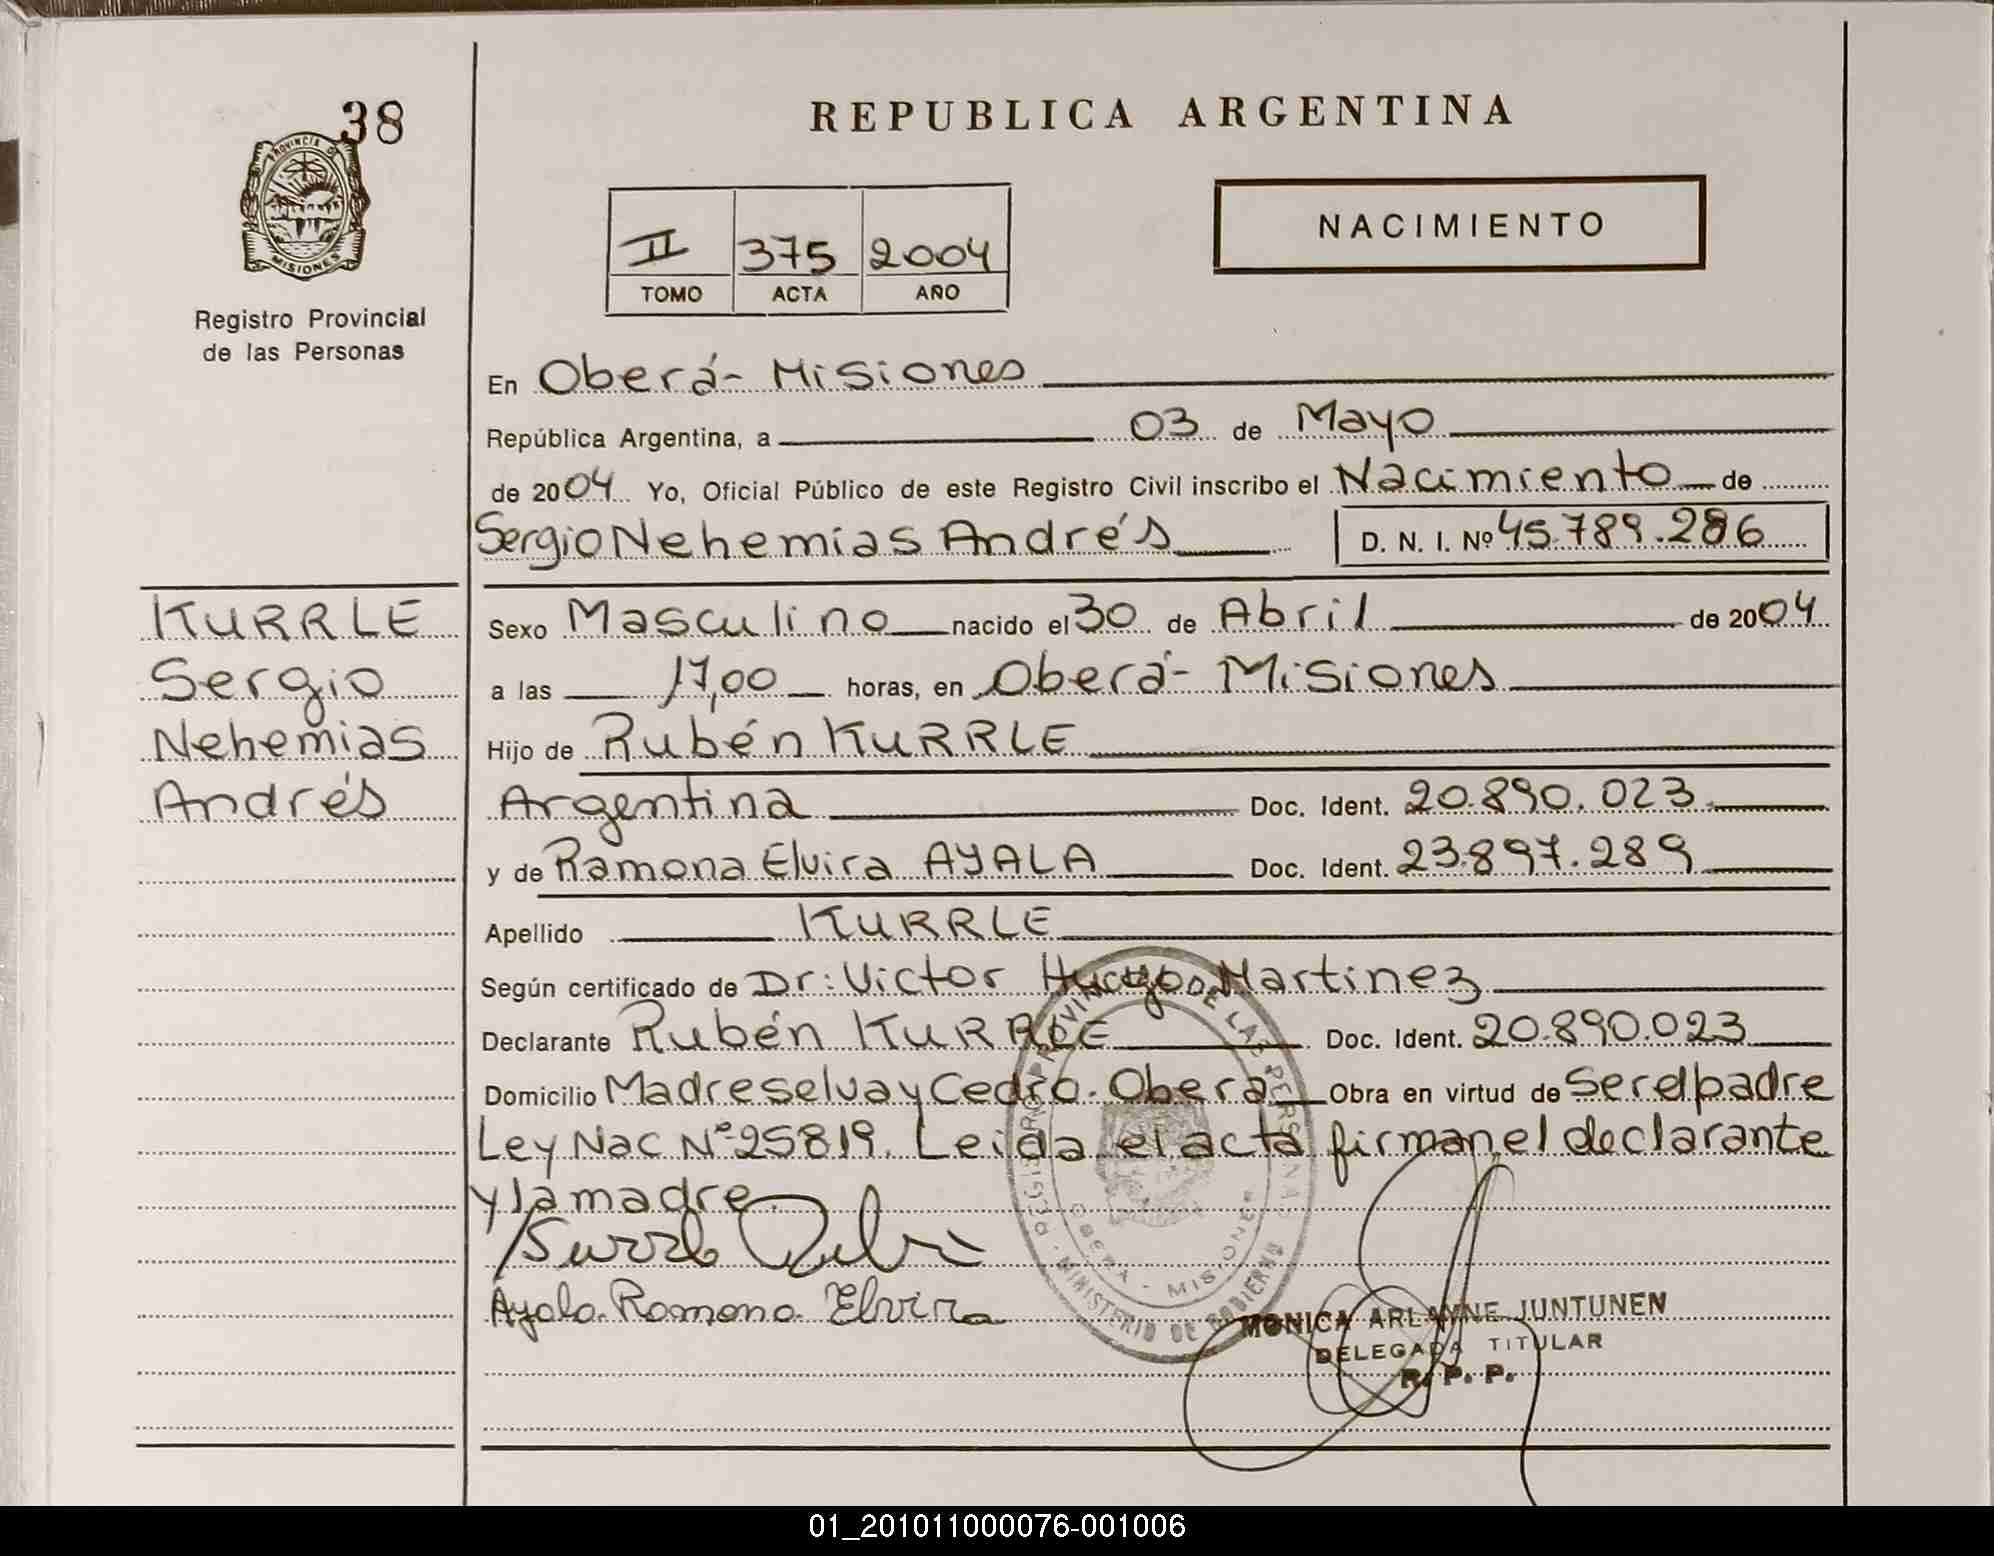 38
PROVINCIA DE
MISIONES
Registro Provincial
de las Personas
REPUBLICA ARGENTINA
II 375 2004
TOMO ACTA AÑO
NACIMIENTO
En Oberá - Misiones
República Argentina, a 03 de Mayo
de 2004 Yo, Oficial Público de este Registro Civil inscribo el Nacimiento de
Sergio Nehemias Andrés D. N. I. Nº 45.789.286
KURRLE
Sergio
Nehemias
Andrés
Sexo Masculino nacido el 30 de Abril de 2004
a las 17,00 horas, en Oberá - Misiones
Hijo de Rubén KURRLE
Argentina Doc. Ident. 20.890.023
y de Ramona Elvira AYALA Doc. Ident. 23.897.289
Apellido KURRLE
Según certificado de Dr: Victor Hugo Martinez
Declarante Rubén KURRLE Doc. Ident. 20.890.023
Domicilio Madreselva y Cedro. Obera Obra en virtud de Ser el padre
Ley Nac Nº 25819. Leida el acta firman el declarante
y la madre.
Kurrle Rubén
Ayala Ramona Elvira
REGISTRO PROVINCIAL DE LAS PERSONAS
OBERA - MISIONES
MINISTERIO DE GOBIERNO
MONICA ARLAYNE JUNTUNEN
DELEGADA TITULAR
R. P. P.
01_201011000076-001006